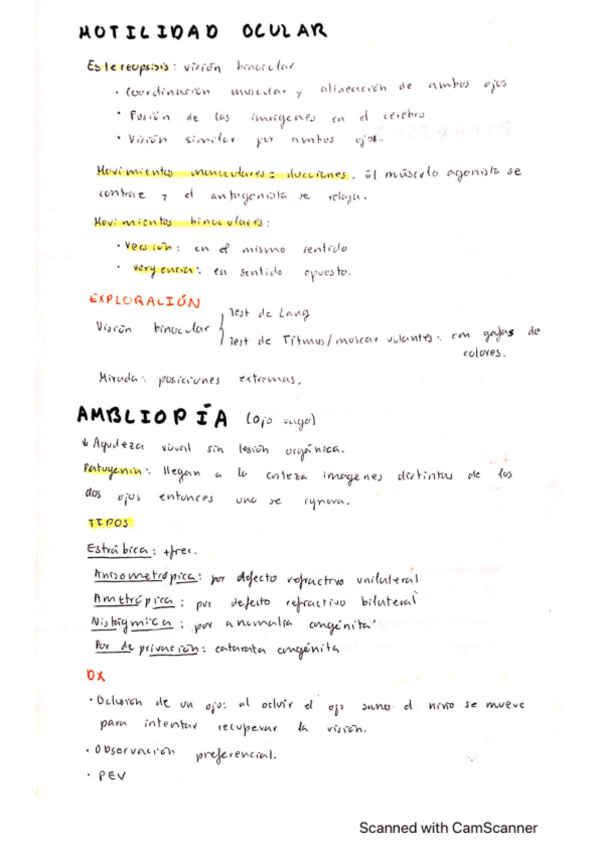 MOTILIDAD OCULAR
Estereopsis: visión binocular
· Coordinación muscular y alineación de ambos ojos
· Fusión de las imágenes en el cerebro
· Visión similar por ambos ojos.
Movimientos monoculares = ducciones. El músculo agonista se
contrae y el antagonista se relaja.
Movimientos binoculares:
· Versión: en el mismo sentido
· Vergencia: en sentido opuesto.
EXPLORACIÓN
Test de Lang
Visión binocular
Test de Titmus/moscas volantes: con gafas de
colores.
Mirada: posiciones extremas.
AMBLIOPÍA (ojo vago)
↓ Agudeza visual sin lesión orgánica.
Patogenia: llegan a la corteza imagenes distintas de los
dos ojos entonces una se ignora.
TIPOS
Estrábica: +frec.
Anisometrópica: por defecto refractivo unilateral
Ametrópica: por defecto refractivo bilateral
Nistágmica: por anomalia congénita
Por deprivación: catarata congénita
DX
· Oclusión de un ojo: al ocluir el ojo sano el niño se mueve
para intentar recuperar la visión.
· Observación preferencial.
· PEV
Scanned with CamScanner